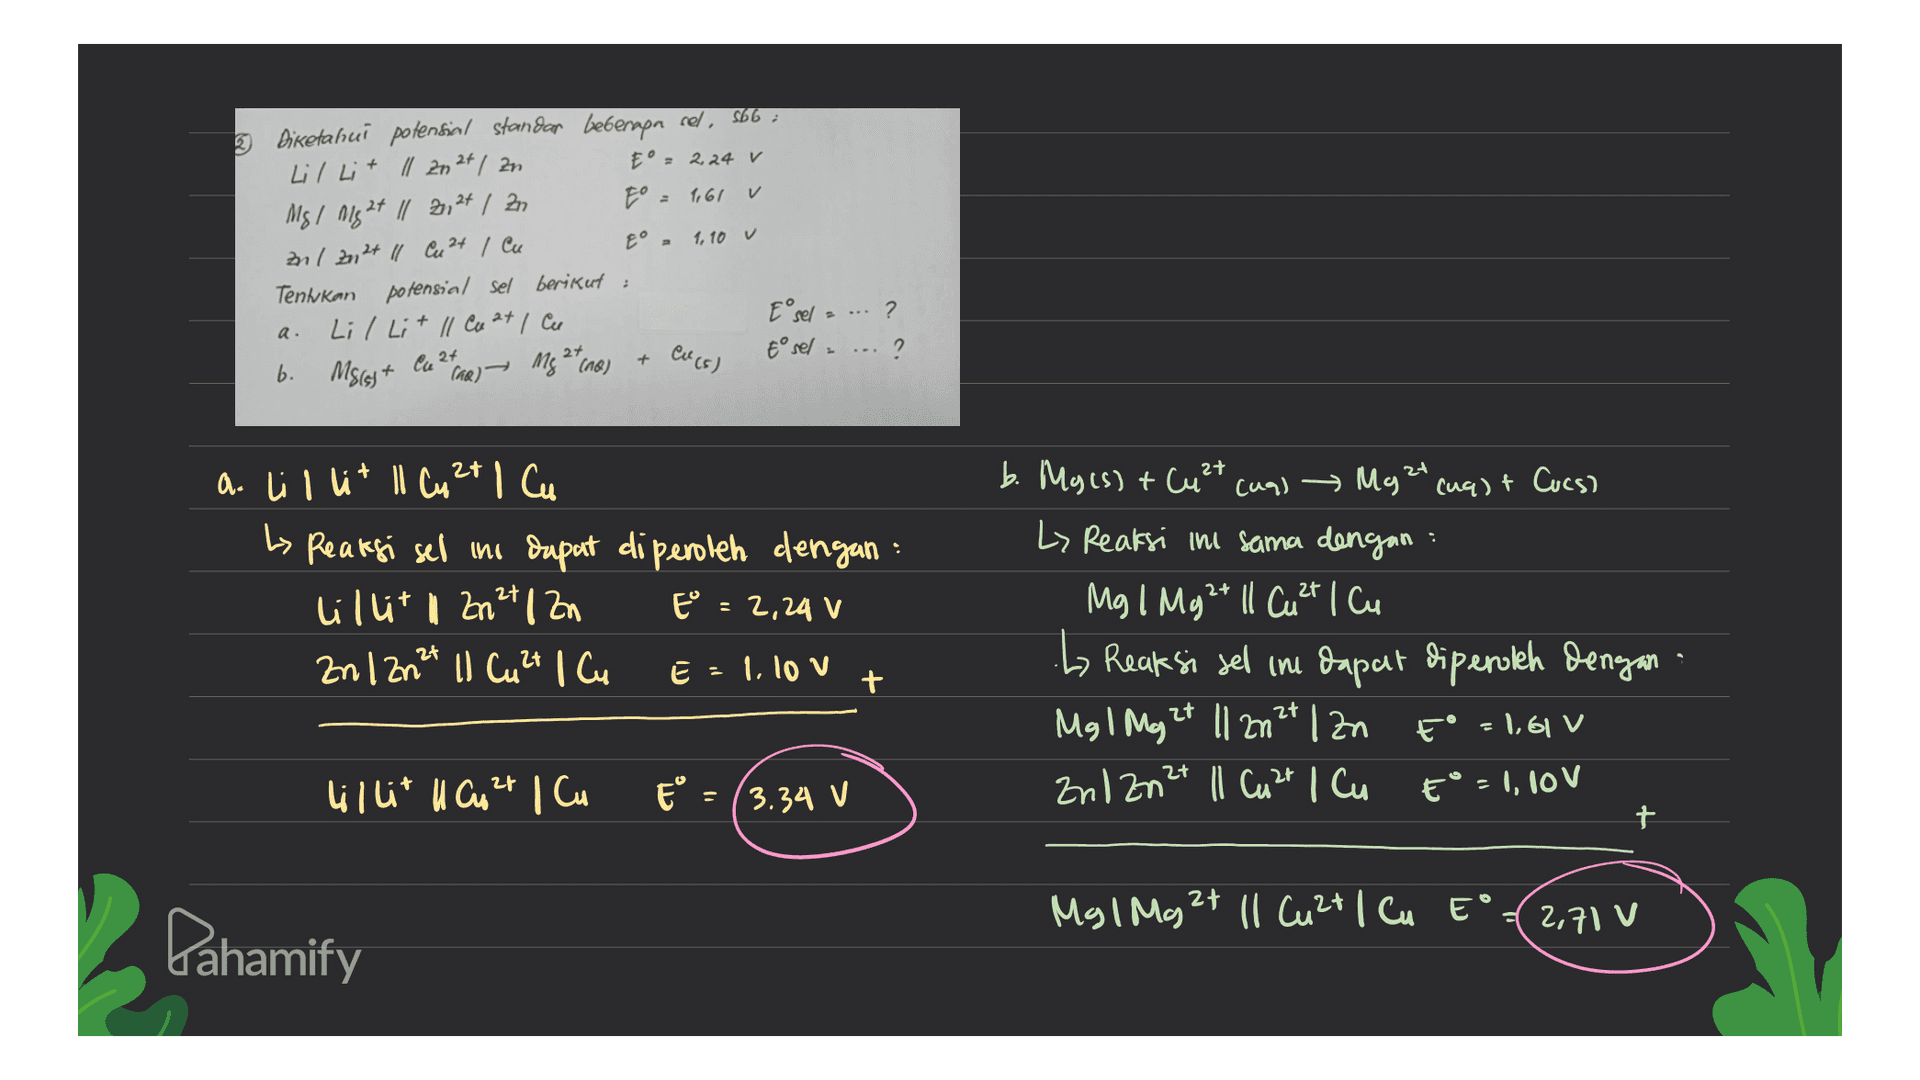 ② Diketahui potensial standar beberapa sel, sbb :
Li / Li⁺ // Zn²⁺ / Zn E° = 2,24 V
Mg / Mg²⁺ // Zn²⁺ / Zn E° = 1,61 V
Zn / Zn²⁺ // Cu²⁺ / Cu E° = 1,10 V
Tentukan potensial sel berikut :
a. Li / Li⁺ // Cu²⁺ / Cu E° sel = ... ?
b. Mg(s) + Cu²⁺(aq) → Mg²⁺(aq) + Cu(s) E° sel = ... ?
a. Li | Li⁺ || Cu²⁺ | Cu
↳ Reaksi sel ini dapat diperoleh dengan :
Li | Li⁺ || Zn²⁺ | Zn E° = 2,24 V
Zn | Zn²⁺ || Cu²⁺ | Cu E = 1.10 V +
Li | Li⁺ || Cu²⁺ | Cu E° = 3.34 V
b. Mg(s) + Cu²⁺(aq) → Mg²⁺(aq) + Cu(s)
↳ Reaksi ini sama dengan :
Mg | Mg²⁺ || Cu²⁺ | Cu
↳ Reaksi sel ini dapat diperoleh dengan :
Mg | Mg²⁺ || Zn²⁺ | Zn E° = 1,61 V
Zn | Zn²⁺ || Cu²⁺ | Cu E° = 1,10 V
+
Mg | Mg²⁺ || Cu²⁺ | Cu E° = 2,71 V
Pahamify